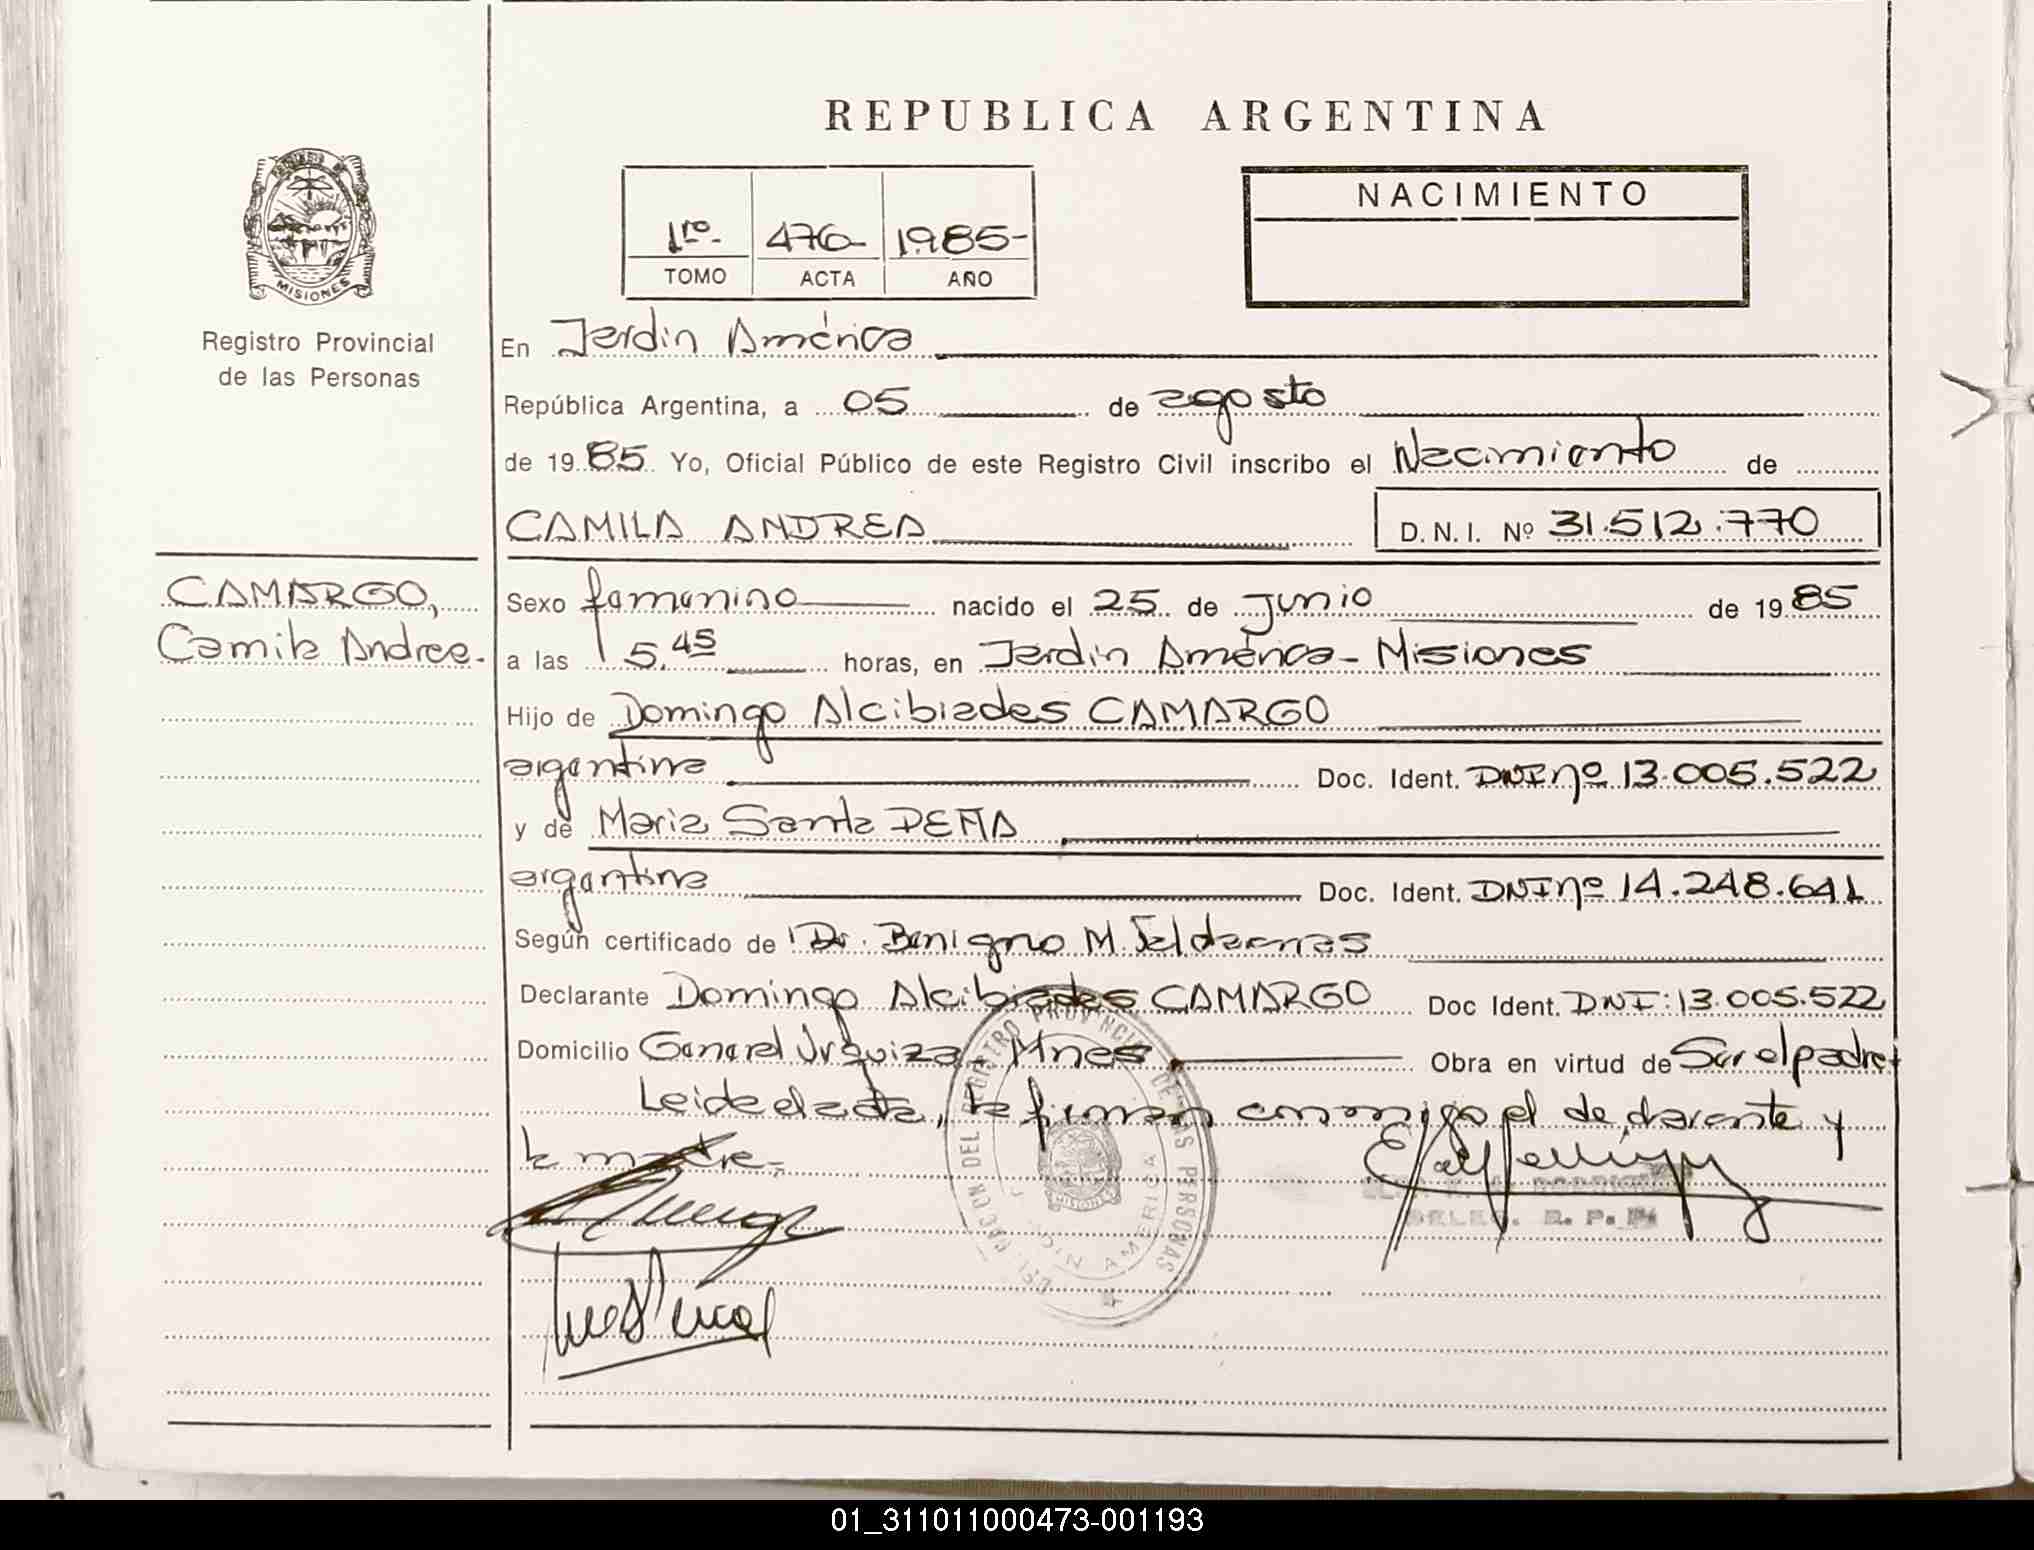 REPUBLICA ARGENTINA
MISIONES
Registro Provincial
de las Personas
1ro.- 476- 1985-
TOMO ACTA AÑO
NACIMIENTO
En Jardin América
República Argentina, a 05 de agosto
de 1985 Yo, Oficial Público de este Registro Civil inscribo el Nacimiento de
CAMILA ANDREA D.N.I. Nº 31.512.770
CAMARGO,
Camila Andrea.-
Sexo femenino nacido el 25 de Junio de 1985
a las 5.45 horas, en Jardin América - Misiones
Hijo de Domingo Alcibiades CAMARGO
argentina Doc. Ident. DNI nº 13.005.522
y de Maria Santa PEÑA
argentina Doc. Ident. DNI nº 14.248.641
Según certificado de Dr. Benigno M.
Declarante Domingo Alcibiades CAMARGO Doc Ident. DNI: 13.005.522
Domicilio General Urquiza - Mnes Obra en virtud de Ser el padre
Leida el acta, la firman conmigo el declarante y
la madre.-
REGISTRO PROVINCIAL DE LAS PERSONAS
AMERICA
DELEG. R. P. P.
01_311011000473-001193